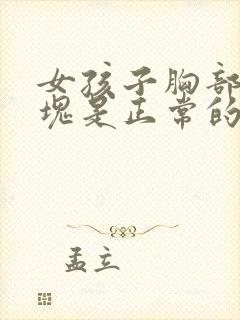 女孩子胸部
塊是正常的
孟立